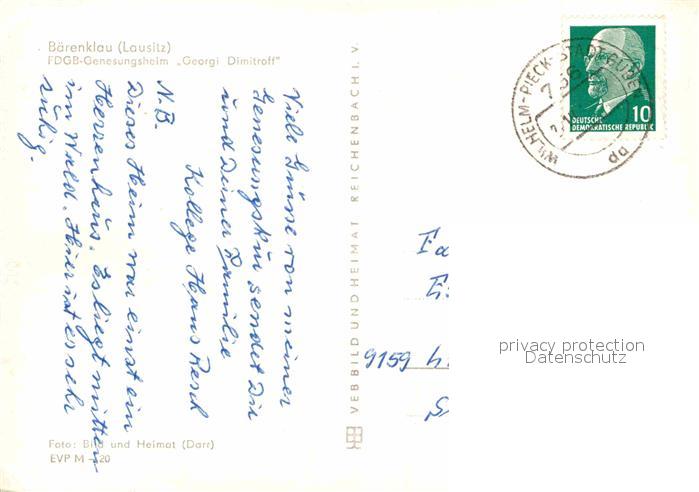 Bärenklau (Lausitz)
FDGB-Genesungsheim „Georgi Dimitroff"
Viele Grüsse von meiner
Genesungskur sendet Dir
und Deiner Familie
Kollege Hans Resch
N.B.
Dieses Heim war einst ein
Herrenhaus. Es liegt mitten
im Wald. Hier ist es sehr
ruhig.
Foto: Bild und Heimat (Darr)
EVP M –,20
VEB BILD UND HEIMAT REICHENBACH I. V.
WILHELM-PIECK-STADT GUBEN
DEUTSCHE
DEMOKRATISCHE REPUBLIK
10
Fa
9159
privacy protection
Datenschutz